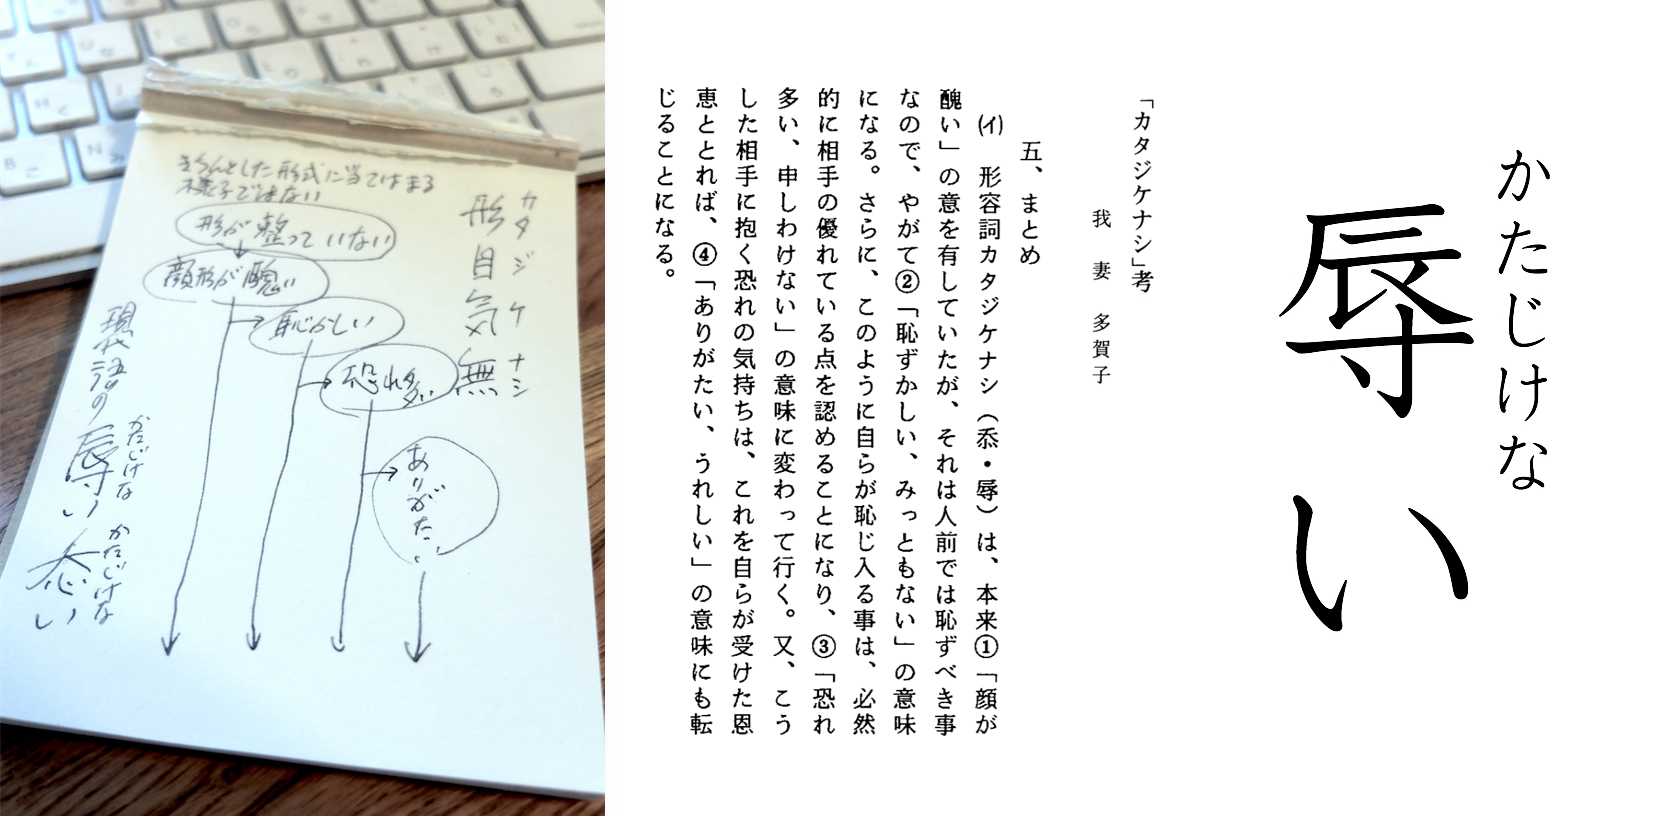 かたじけな
辱い
「カタジケナシ」考
我妻多賀子
五、まとめ
(イ) 形容詞カタジケナシ（忝・辱）は、本来①「顔が
醜い」の意を有していたが、それは人前では恥ずべき事
なので、やがて②「恥ずかしい、みっともない」の意味
になる。さらに、このように自らが恥じ入る事は、必然
的に相手の優れている点を認めることになり、③「恐れ
多い、申しわけない」の意味に変わって行く。又、こう
した相手に抱く恐れの気持ちは、これを自らが受けた恩
恵ととれば、④「ありがたい、うれしい」の意味にも転
じることになる。
きちんとした形式に当てはまる
様子ではない
カタジケナシ
形自気無
形が整っていない
顔形が醜い
恥かしい
恐れ多い
ありがたい
現代語の
かたじけな
辱い
かたじけな
忝い